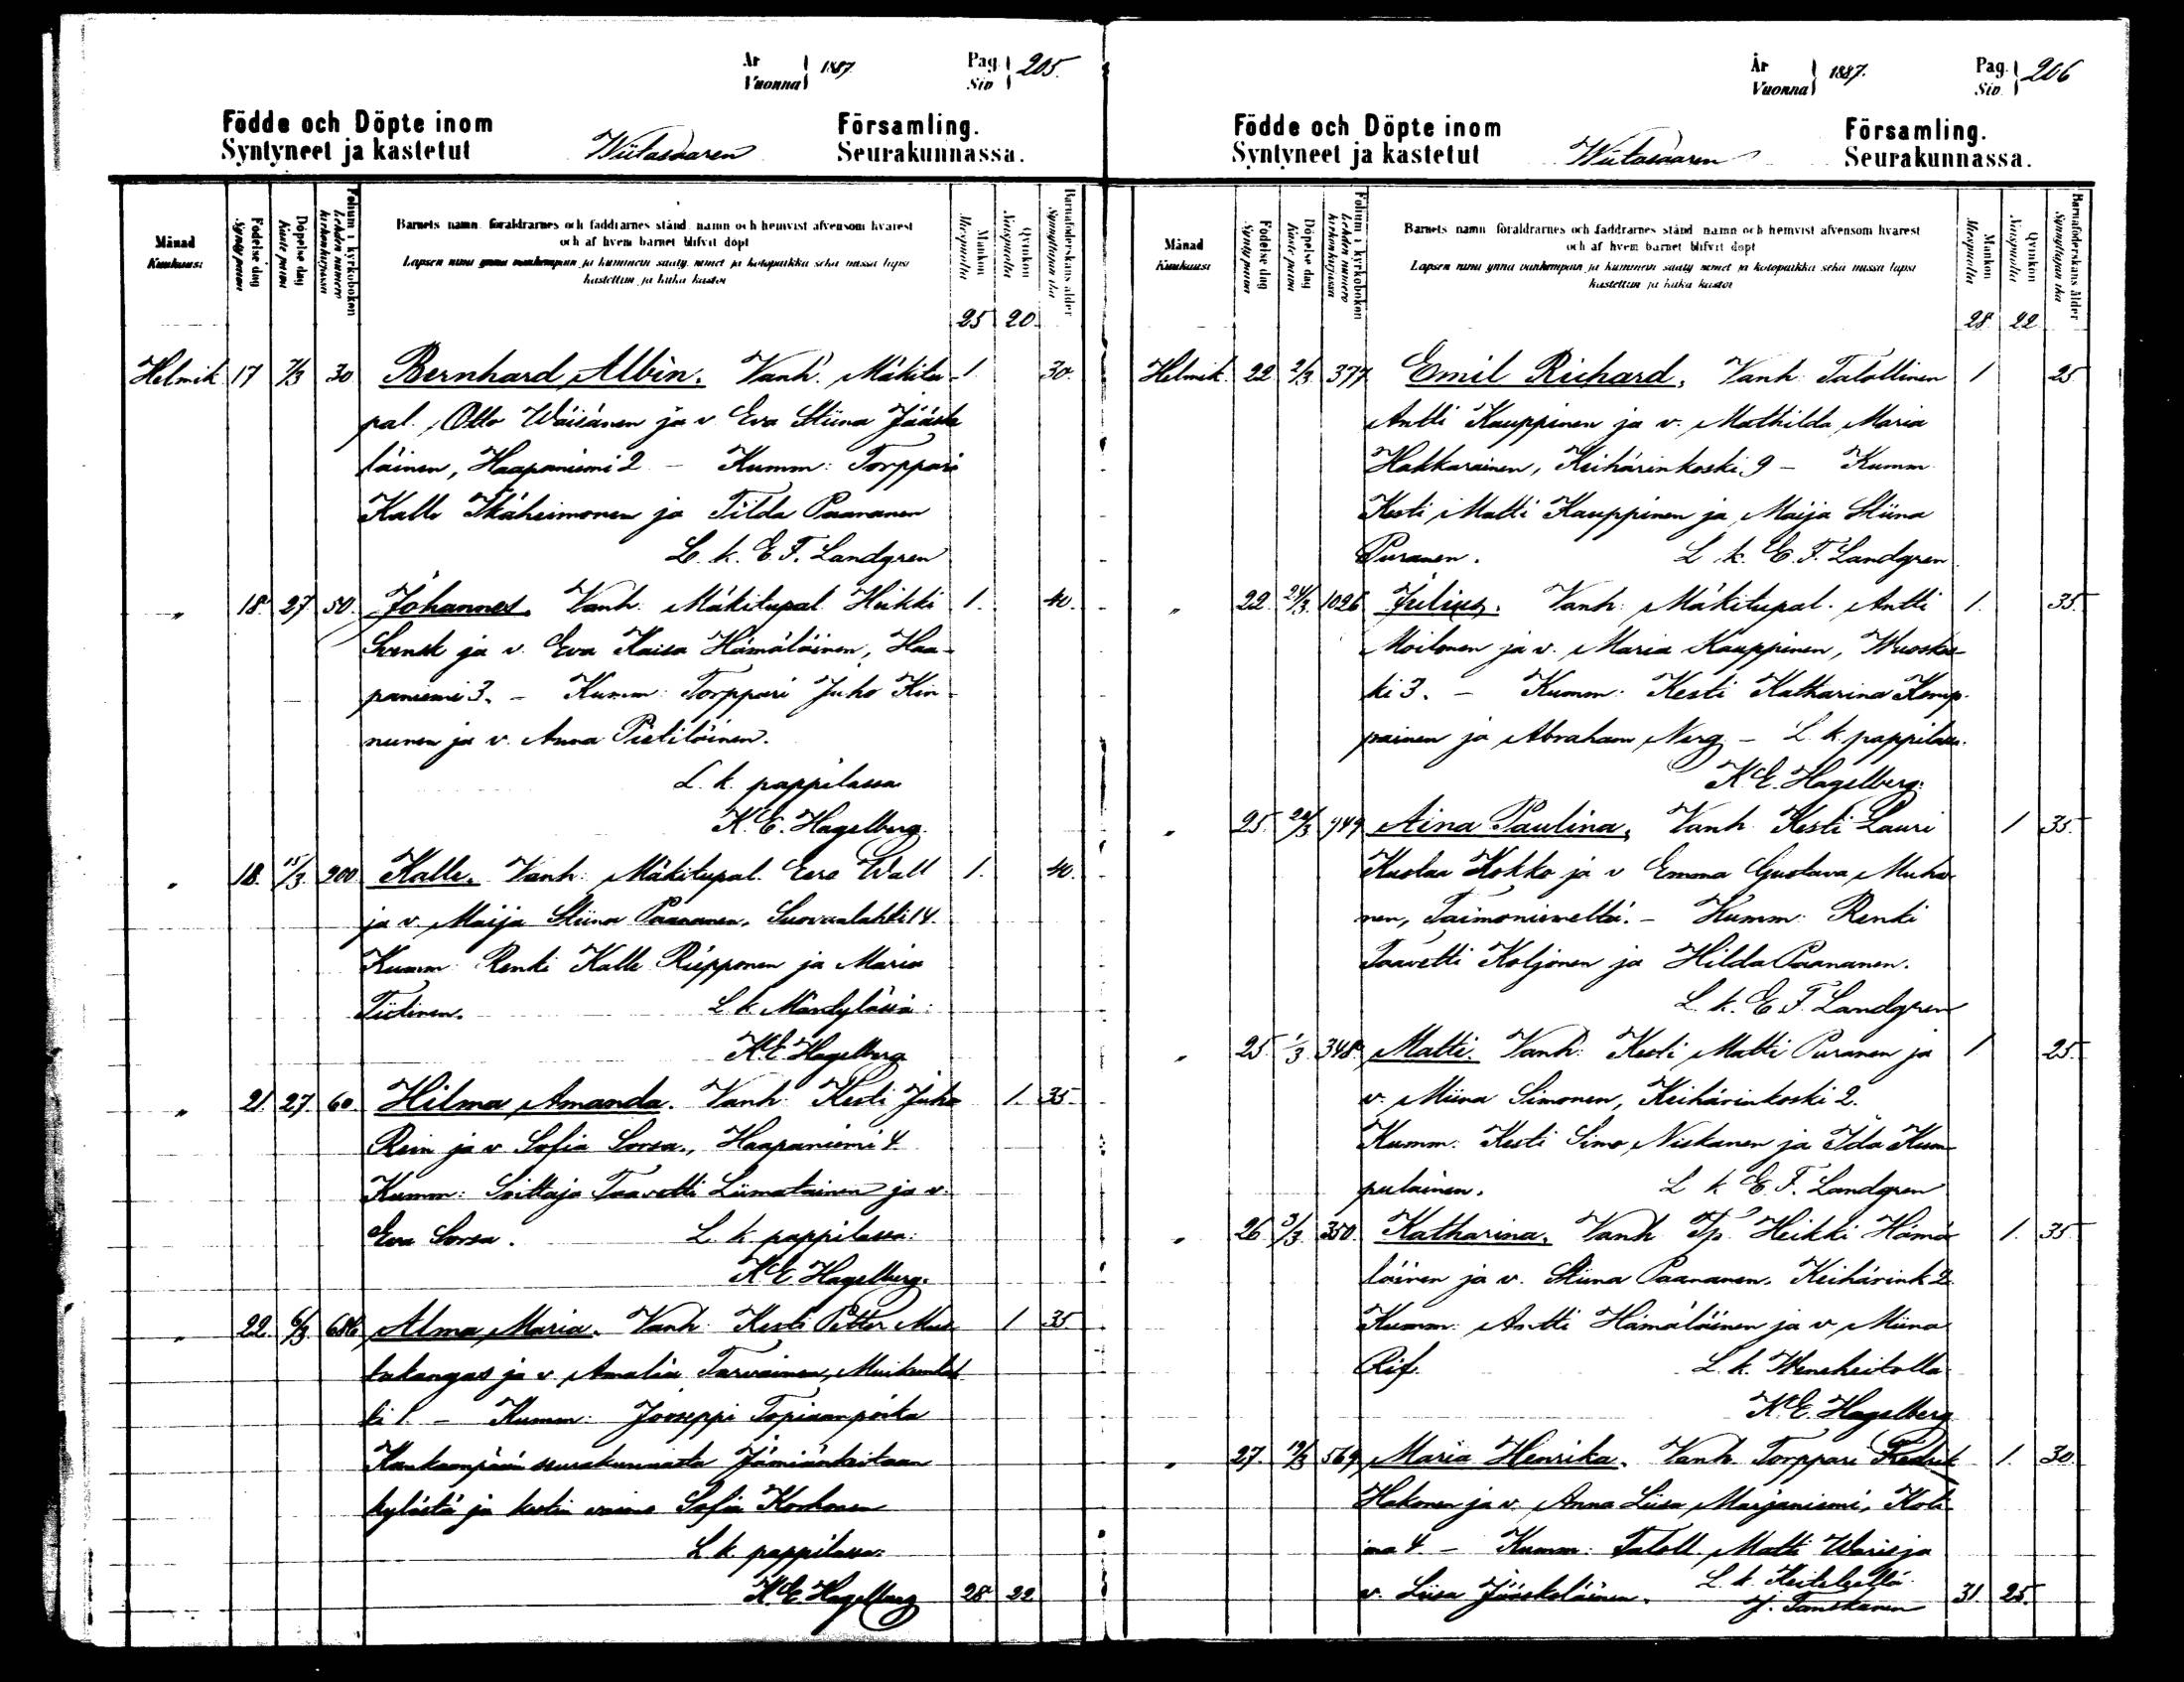 År
Vuonna 1887.
Pag.
Siv. 205.
Födde och Döpte inom Församling.
Syntyneet ja kastetut Wiitasaaren Seurakunnassa.
Månad
Kuukausi
Födelse dag
Synty päivä
Döpelse dag
Kaste päivä
Folium i kyrkoboken
Lehden numero kirkonkirjassa
Barnets namn, föräldrarnes och faddrarnes stånd, namn och hemvist äfvensom hvarest
och af hvem barnet blifvit döpt
Lapsen nimi ynnä vanhempain ja kummein sääty, nimet ja kotopaikka sekä missä lapsi
kastettiin ja kuka kastoi
Mankön
Miespuolta
Qvinkön
Naispuolta
Barnaföderskans ålder
Synnyttäjän ikä
25 20.
Helmik 17 7/3 30 Bernhard Albin. Vanh. Mäkitu- 1. 30.
pal. Otto Wäisänen ja v. Eva Stiina Jääske
läinen, Haapaniemi 2 – Kumm: Torppari
Kalle Ikäheimonen ja Tilda Paananen
L. k. E. F. Landgren
" 18. 27 50. Johannes. Vanh. Mäkitupal. Heikki 1. 40.
Svensk ja v. Eva Kaisa Hämäläinen, Haa-
paniemi 3. – Kumm: Torppari Juho Kin-
nunen ja v. Anna Pietiläinen.
L. k. pappilassa
K. E. Hagelberg.
" 18. 15/3 200 Kalle. Vanh: Mäkitupal. Eero Wall 1. 40.
ja v. Maija Stiina Paananen, Suovanlahti 14.
Kumm: Renki Kalle Riepponen ja Maria
Tiitinen. L. k. Mändylässä:
K. E. Hagelberg
" 21. 27. 60. Hilma Amanda. Vanh: Kesti Juho 1. 35.
Rein ja v. Sofia Sorsa., Haapaniemi 4.
Kumm: Soittaja Taavetti Liimatainen ja v.
Eva Sorsa. L. k. pappilassa:
K. E. Hagelberg.
" 22. 6/3 686 Alma Maria. Vanh: Kesti Petter Mus- 1 35.
takangas ja v. Amalia Tarvainen, Muikunlah
ti 1. – Kumm: Jooseppi Topiaanpoika
Kankaanpään seurakunnasta Jämiänkeitaan
kylästä ja kestin vaimo Sofia Korhonen
L. k. pappilassa:
K. E. Hagelberg 28 22
År
Vuonna 1887.
Pag.
Siv. 206
Födde och Döpte inom Församling.
Syntyneet ja kastetut Wiitasaaren Seurakunnassa.
Månad
Kuukausi
Födelse dag
Synty päivä
Döpelse dag
Kaste päivä
Folium i kyrkoboken
Lehden numero kirkonkirjassa
Barnets namn, föräldrarnes och faddrarnes stånd, namn och hemvist äfvensom hvarest
och af hvem barnet blifvit döpt
Lapsen nimi ynnä vanhempain ja kummein sääty, nimet ja kotopaikka sekä missä lapsi
kastettiin ja kuka kastoi
Mankön
Miespuolta
Qvinkön
Naispuolta
Barnaföderskans ålder
Synnyttäjän ikä
28. 22.
Helmik. 22 2/3 377 Emil Richard, Vanh: Talollinen 1 25
Antti Kauppinen ja v. Mathilda Maria
Hakkarainen, Keihärinkoski 9 – Kumm.
Kesti Matti Kauppinen ja Maija Stiina
Puranen. L. k. E. F. Landgren.
" 22. 24/3 1026 Julius. Vanh: Mäkitupal. Antti 1. 35.
Moilanen ja v. Maria Kauppinen, Wuoskos-
ki 3. – Kumm: Kesti Katharina Komp-
painen ja Abraham Nerg – L. k. pappilass.
K. E. Hagelberg.
" 25. 24/3 949 Aina Paulina, Vanh: Kesti Lauri 1 35.
Kustaa Kokko ja v. Emma Gustava Muho-
nen, Taimoniemeltä. – Kumm: Renki
Taavetti Koljonen ja Hilda Paananen.
L. k. E. F. Landgren
" 25. 1/3 348. Matti. Vanh: Kesti Matti Puranen ja 1 25.
v. Miina Simonen, Keihärinkoski 2.
Kumm. Kesti Simo Niskanen ja Ida Kum
pulainen. L. k. E. F. Landgren
" 26 3/3 350. Katharina. Vanh. Tp. Heikki Hämä 1. 35.
läinen ja v. Stiina Paananen. Keihärink 2.
Kumm: Antti Hämäläinen ja v. Miina
Rif. L. k. Weneheitolla
K. E. Hagelberg
" 27. 12/3 569 Maria Henrika. Vanh. Torppari Fredrik 1. 30.
Hakonen ja v. Anna Liisa Marjaniemi, Koli
ma 4. – Kumm: Taloll. Matti Waris ja
v. Liisa Jääskeläinen. L. k. Keiteleellä.
J. Tanskanen 31. 25.